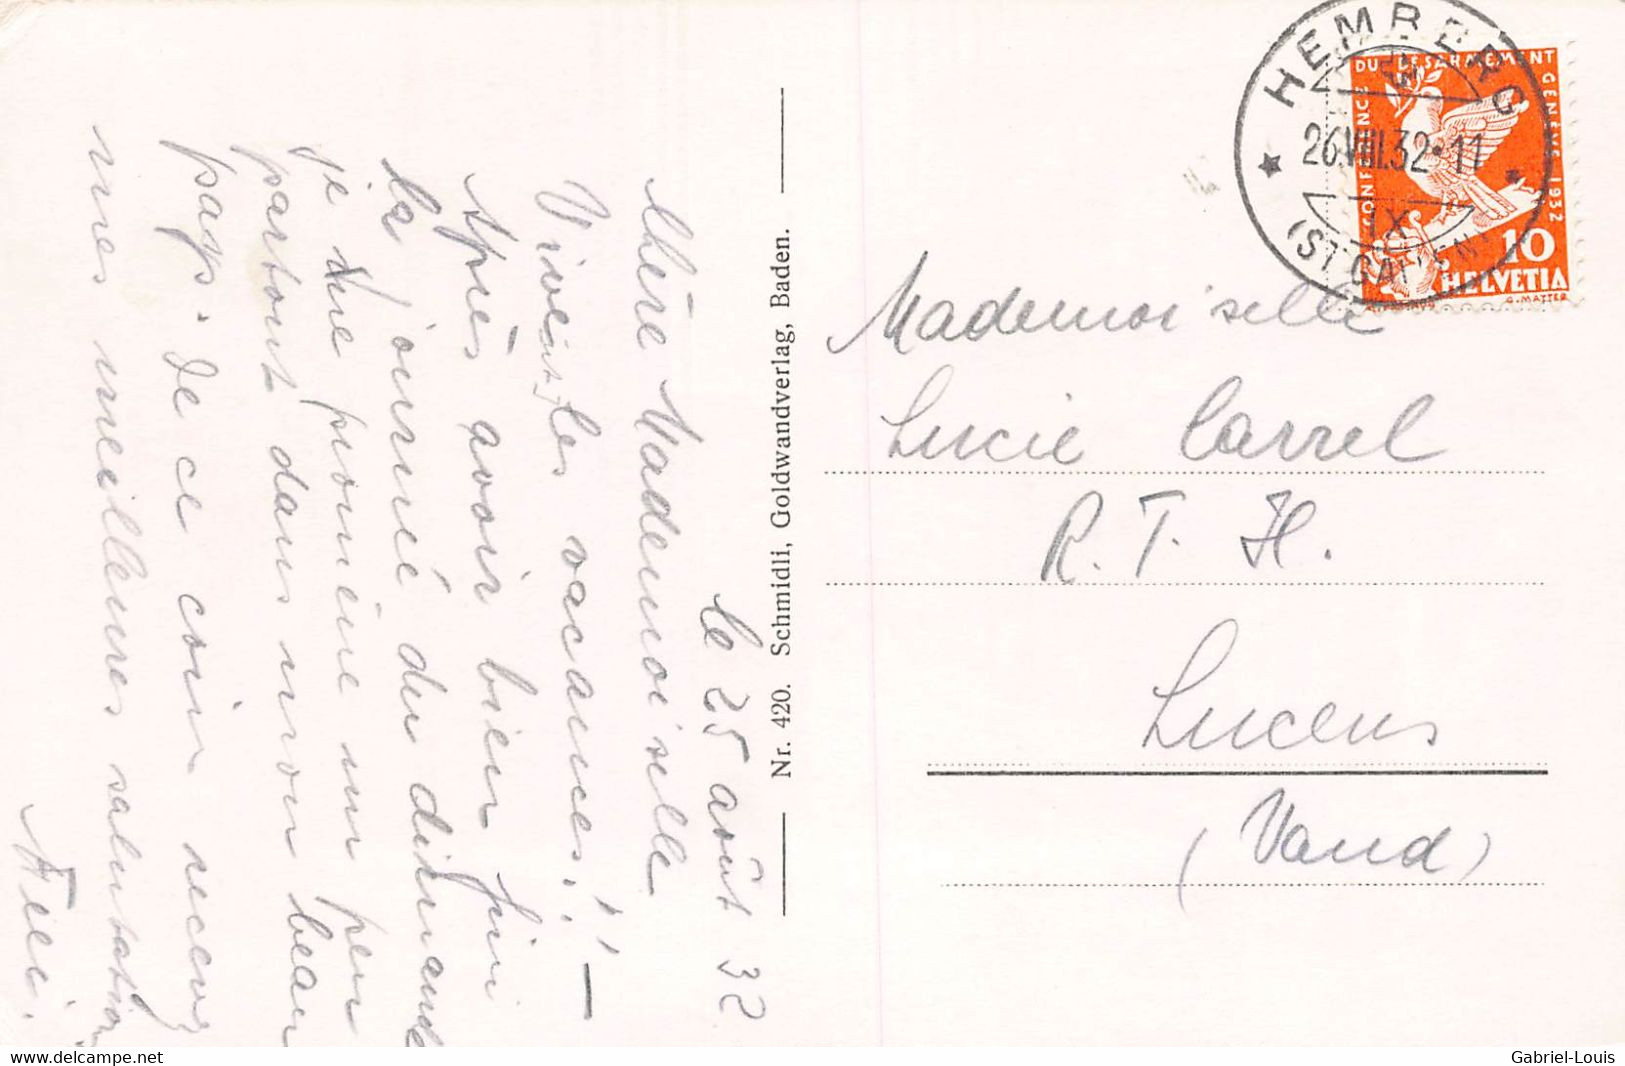 le 25 août 32
Chère Mademoiselle
Vivent les vacances! –
Après avoir bien fini
la journée du dimanche
je me promène un peu
partout dans mon beau
pays. De ce coin recevez
mes meilleures salutations
Nr. 420. Schmidli, Goldwandverlag, Baden.
HEMBERG
26.VIII.32·11
IX
(ST. GALLEN)
CONFERENCE DU DESARMEMENT GENEVE 1932
10
HELVETIA
G. MATTER
Mademoiselle
Lucie Carrel
R. T. H.
Lucens
(Vaud)
www.delcampe.net
Gabriel-Louis